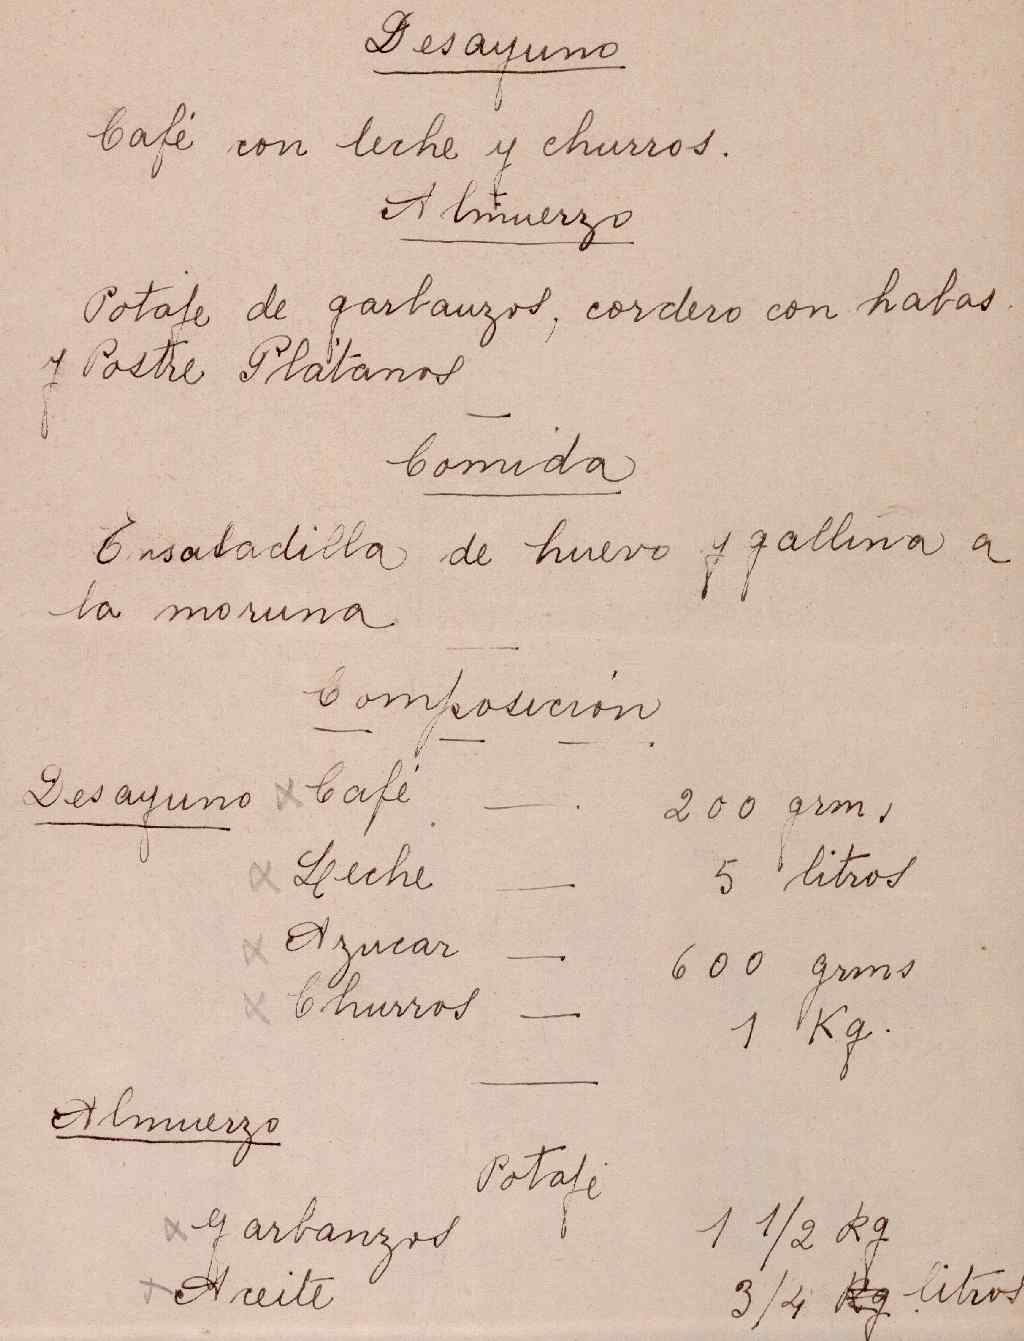 Desayuno
Café con leche y churros.
Almuerzo
Potaje de garbanzos, cordero con habas.
y Postre Plátanos
Comida
Ensaladilla de huevo y gallina a
la moruna
Composición
Desayuno x Café — 200 grms
x Leche — 5 litros
x Azucar — 600 grms
x Churros — 1 Kg.
Almuerzo
Potaje
x Garbanzos 1 1/2 kg
x Aceite 3/4 Kg litros